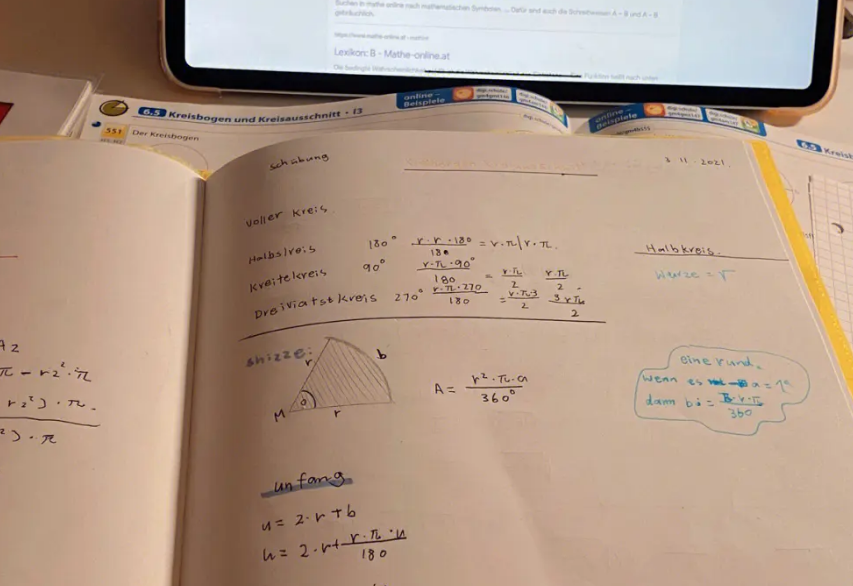 Suchen in mathe online nach mathematischen Symbolen. ... Dafür sind auch die Schreibweisen A – B und A – B
gebräuchlich.
https://www.mathe-online.at › mathint
Lexikon: B - Mathe-online.at
6.5 Kreisbogen und Kreisausschnitt - I3
online-
Beispiele
551
Der Kreisbogen
online-
Beispiele
6.5 Kreisb
schübung
3 11. 2021.
Voller Kreis
Halbslreis 180° r·r·180/180 = r·π | r·π.
Kreitekreis 90° r·π·90°/180 = r·π/2 r·π/2
Dreiviatst Kreis 270° r·π·270/180 = r·π·3/2 3rπ/2
Halbkreis.
Wurze = r
skizze:
r
b
M
r
A = r²·π·a/360°
eine rund.
Wenn es a = 1°
dann b: = r·π/360
A2
π - r2²·π
r2²)·π.
²)·π
unfang
u = 2·r+b
u = 2·r+ r·π·u/180